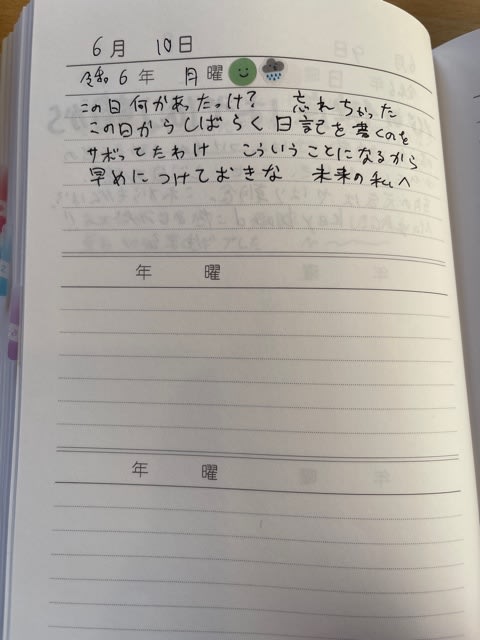 6月 10日
令和6年 月曜
この日何かあったっけ? 忘れちゃった
この日からしばらく日記を書くのを
サボってたわけ こういうことになるから
早めにつけておきな 未来の私へ
年 曜
年 曜